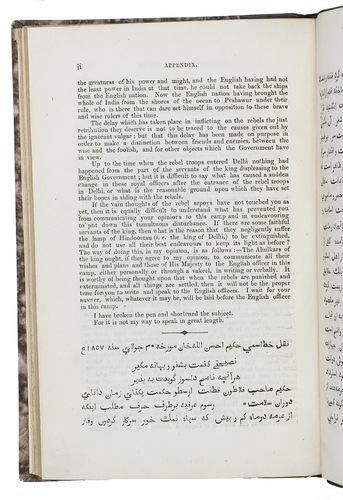 ii APPENDIX.
the greatness of his power and might, and the English having had not
the least power in India at that time, he could not take back the ships
from the English nation. Now the English nation having brought the
whole of India from the shores of the ocean to Peshawur under their
rule, who is there that can dare set himself in opposition to these brave
and wise rulers of this time.
The delay which has taken place in inflicting on the rebels the just
retribution they deserve is not to be traced to the causes given out by
the ignorant vulgar; but that this delay has been made on purpose in
order to make a distinction between friends and enemies, between the
wise and the foolish, and for other objects which the Government have
in view.
Up to the time when the rebel troops entered Delhi nothing had
happened from the part of the servants of the king displeasing to the
English Government; but it is difficult to say what has caused a sudden
change in these royal officers after the entrance of the rebel troops
in Delhi, or what is the reasonable ground upon which they have set
their hopes in siding with the rebels.
If the vain thoughts of the rebel sepoys have not touched you as
yet, then it is equally difficult to understand what has prevented you
from communicating your opinions to this camp and in endeavouring
to put down this tumultuous disturbance. If there are some faithful
servants of the king, then what is the reason that they negligently suffer
the lamp of Hindoostan (i. e. the king of Delhi) to be extinguished,
and do not use all their best endeavours to keep its light as before?
The way of doing this, in my opinion, is as follows:—The Ahulkars of
the king ought, if they agree to my opinion, to communicate all their
wishes and plans and those of His Majesty to the English officer in this
camp, either personally or through a vakeel, in writing or verbally. It
is worthy of being thought upon that when the rebels are punished and
exterminated, and all things are settled, then is will not be the proper
time for you to write and speak to the English officers. I wait for your
answer, which, whatever it may be, will be laid before the English officer
in this camp.
I have broken the pen and shortened the subject.
For it is not my way to speak in great length.
نقل خط اسمي حكيم احسن الله خان مورخه ٣٠ جولائي سنه ١٨٥٧ ع
نصيحتي كنمت بشنو و بهانه مگير
هر آنچه ناصح دلسوز گويدت به پذير
حكيم صاحب فلاطون فطنت ارسطو حكمت يكتاي زمان داناي
دوران سلامت * رسوم عرفيه برطرف حرف مطلب اينكه
از عرصه دو ماه كم و بيش كه سپاه نمك خور سركار گردون وقار